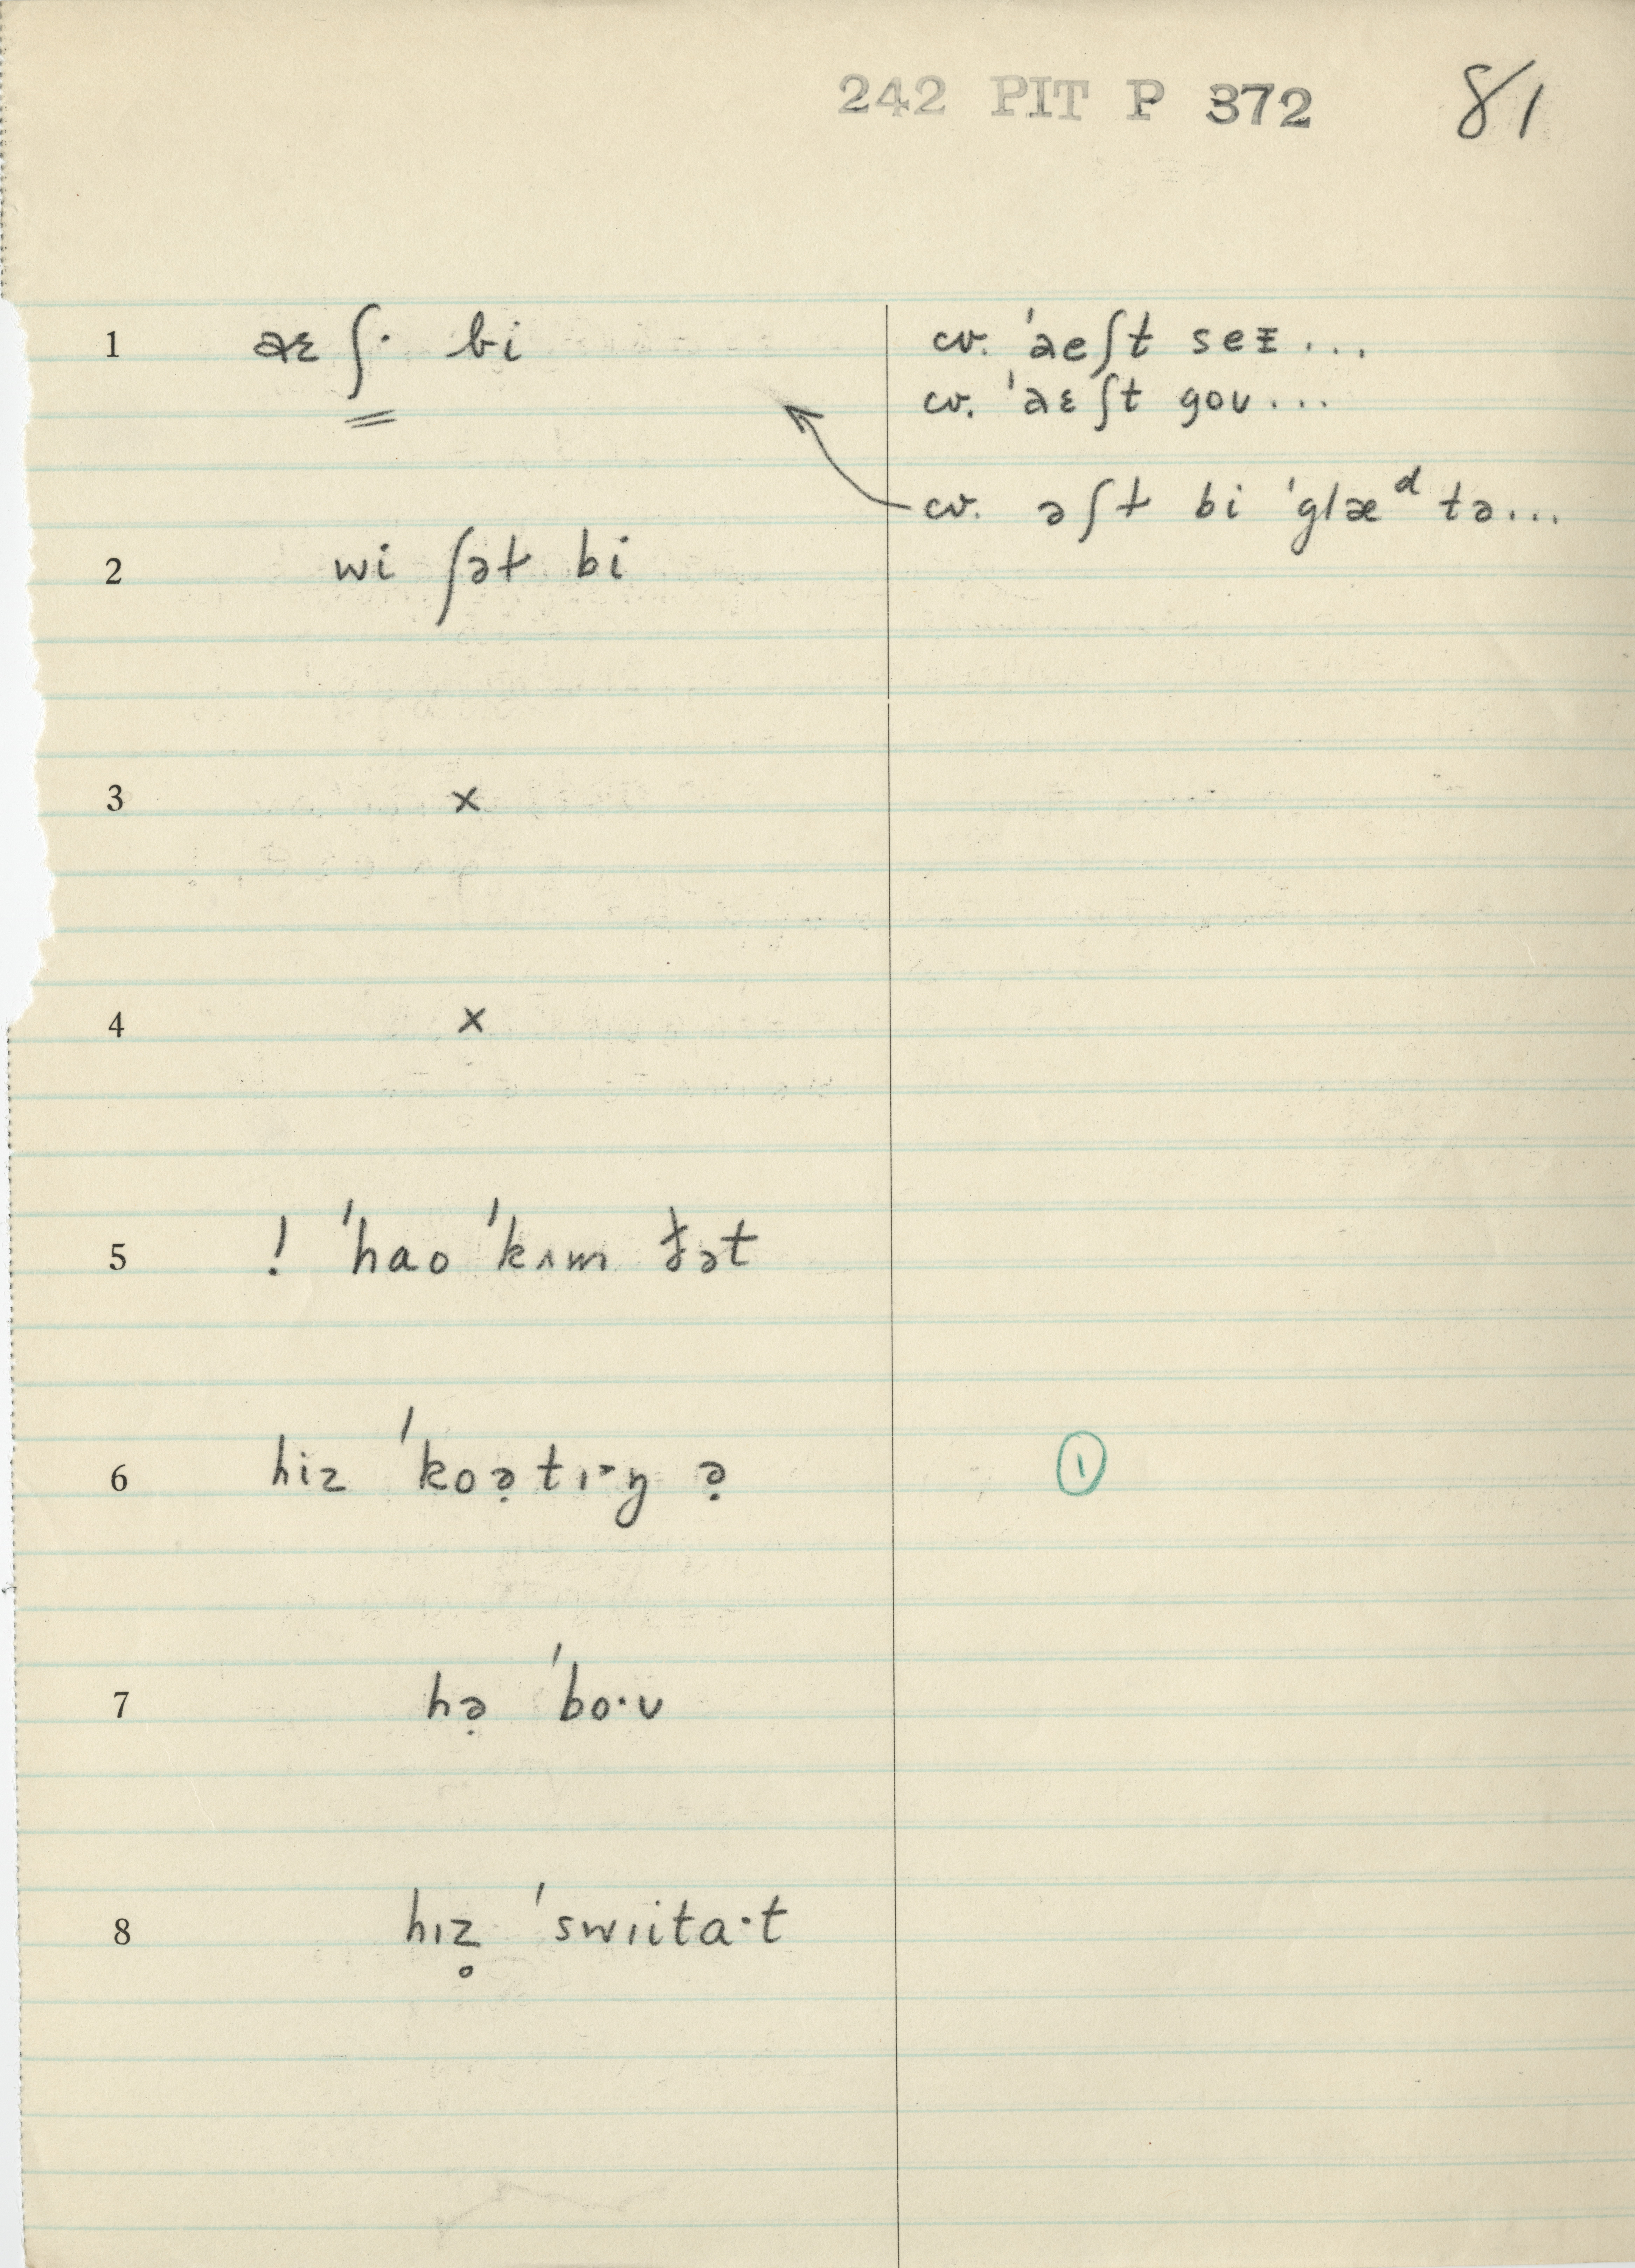 242 PIT P 372 81
1 aɛʃ· bi cv. ˈaeʃt seɪ...
cv. ˈaɛʃt goʊ...
cv. əʃt bi ˈglæᵈ tə...
2 wi ʃət bi
3 x
4 x
5 ! ˈhao ˈkʌm ðət
6 hiz ˈkoə̣tɪ˞ŋ ə̣ 1
7 hə̣ ˈbo·ʊ
8 hɪz̥ ˈswɪita·t